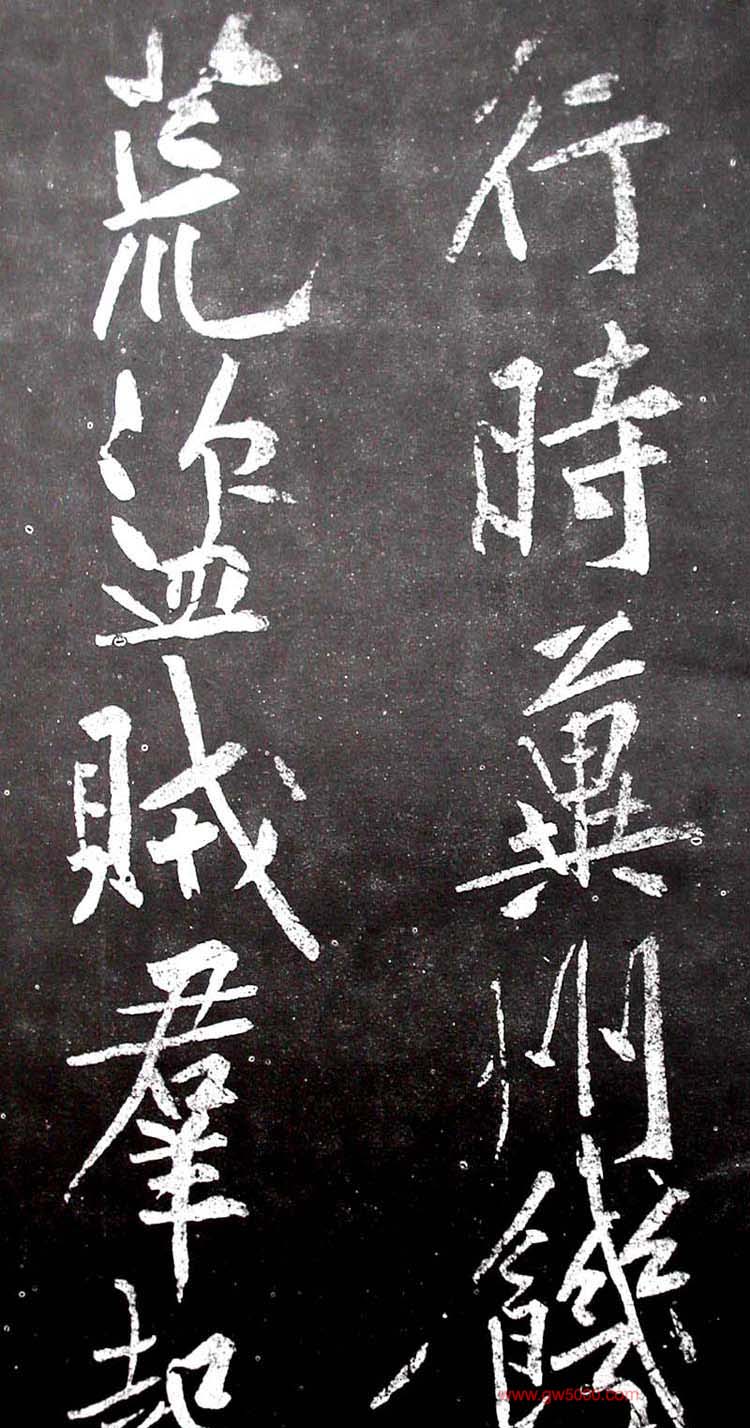 行時冀州饑
荒盜賊羣起
www.gw5000.com